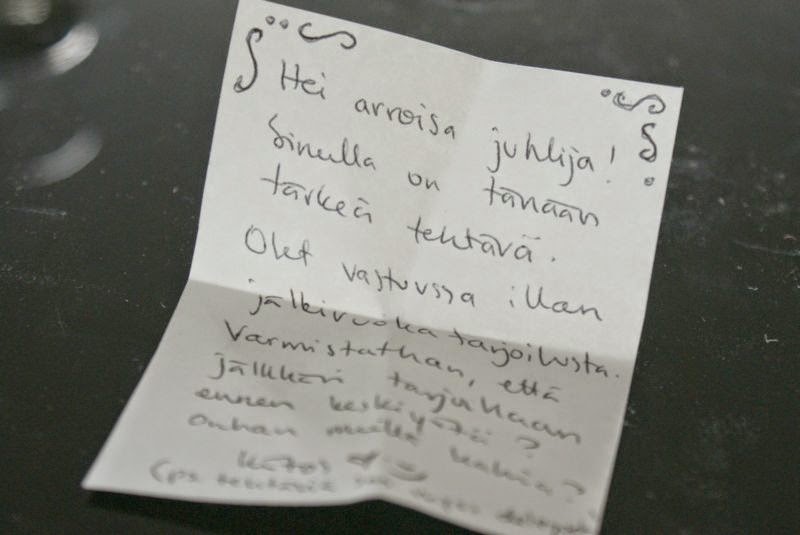 Hei arvoisa juhlija!
Sinulla on tänään
tärkeä tehtävä.
Olet vastuussa illan
jälkiruokatarjoilusta.
Varmistathan, että
jälkkäri tarjoillaan
ennen keskiyötä?
Onhan meillä kahvia?
Kiitos
(ps